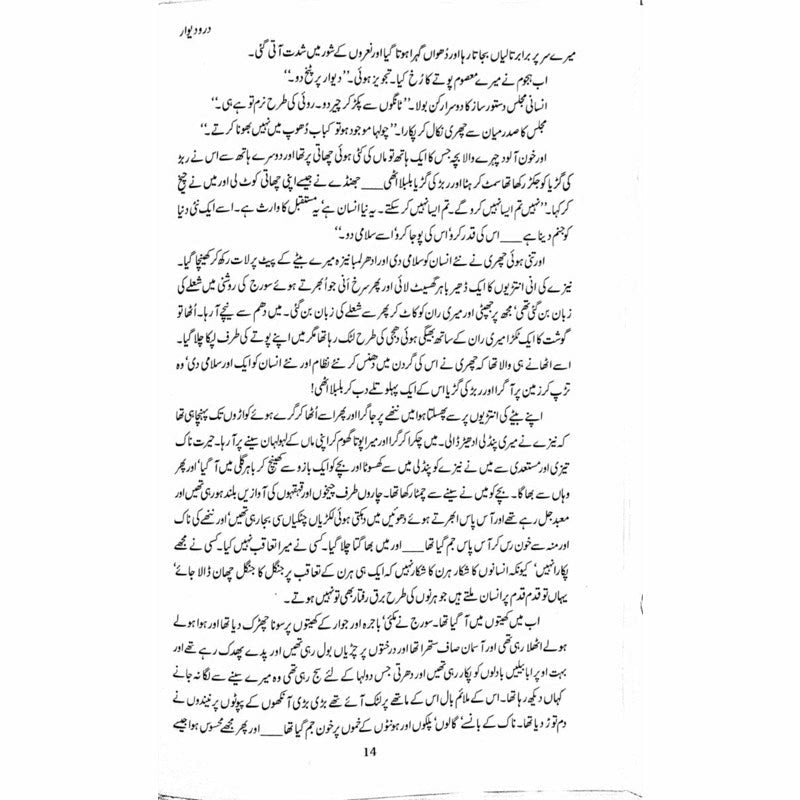 در و دیوار
میرے سر پر برابر تالیاں بجاتا رہا اور دُھواں گہرا ہوتا گیا اور نعروں کے شور میں شدت آتی گئی۔
اب ہجوم نے میرے معصوم پوتے کا رُخ کیا۔ تجویز ہوئی۔ ’’دیوار پر پٹخ دو۔‘‘
انسانی مجلس دستور ساز کا دوسرا رکن بولا۔ ’’ٹانگوں سے پکڑ کر چیر دو۔ روئی کی طرح نرم تو ہے ہی۔‘‘
مجلس کا صدر میان سے چھری نکال کر پکارا۔ ’’چولہا موجود ہو تو کباب دُھوپ میں نہیں بھونا کرتے۔‘‘
اور خون آلود چہرے والا بچہ جس کا ایک ہاتھ تو ماں کی کٹی ہوئی چھاتی پر تھا اور دوسرے ہاتھ سے اس نے ربڑ
کی گڑیا کو جکڑ رکھا تھا سمٹ کر ہٹا اور ربڑ کی گڑیا بلبلا اٹھی____ جھنڈے نے جیسے اپنی چھاتی کوٹ لی اور میں نے چیخ
کر کہا۔ ’’نہیں تم ایسا نہیں کرو گے۔ تم ایسا نہیں کر سکتے۔ یہ نیا انسان ہے‘ یہ مستقبل کا وارث ہے۔ اسے ایک نئی دنیا
کو جنم دینا ہے____ اس کی قدر کرو‘ اس کی پوجا کرو‘ اسے سلامی دو۔‘‘
اور تنی ہوئی چھری نے نئے انسان کو سلامی دی اور ادھر لمبا نیزہ میرے بیٹے کے پیٹ پر لات رکھ کر کھینچا گیا۔
نیزے کی انی انتڑیوں کا ایک ڈھیر باہر گھسیٹ لائی اور پھر سرخ اَنی جو اُبھرتے ہوئے سورج کی روشنی میں شعلے کی
زبان بن گئی تھی‘ مجھ پر جھپٹی اور میری ران کو کاٹ کر پھر سے شعلے کی زبان بن گئی۔ میں دھم سے نیچے آ رہا۔ اُٹھا تو
گوشت کا ایک ٹکڑا میری ران کے ساتھ بھیگی ہوئی دھجی کی طرح لٹک رہا تھا مگر میں اپنے پوتے کی طرف لپکا چلا گیا۔
اسے اٹھانے ہی والا تھا کہ چھری نے اس کی گردن میں دھنس کر نئے نظام اور نئے انسان کو ایک اور سلامی دی‘ وہ
تڑپ کر زمین پر آ گرا اور ربڑ کی گڑیا اس کے ایک پہلو تلے دب کر بلبلا اٹھی!
اپنے بیٹے کی انتڑیوں پر سے پھسلتا ہوا میں ننھے پر جا گرا اور پھر اسے اُٹھا کر گرے ہوئے کواڑوں تک پہنچا ہی تھا
کہ نیزے نے میری پنڈلی ادھیڑ ڈالی۔ میں چکرا کر گرا اور میرا پوتا گھوم کر اپنی ماں کے لہولہان سینے پر آ رہا۔ حیرت ناک
تیزی اور مستعدی سے میں نے نیزے کو پنڈلی میں سے کھسوٹا اور بچے کو ایک بازو سے کھینچ کر باہر گلی میں آ گیا‘ اور پھر
وہاں سے بھاگا۔ بچے کو میں نے سینے سے چمٹا رکھا تھا۔ چاروں طرف چیخوں اور قہقہوں کی آوازیں بلند ہو رہی تھیں اور
معبد جل رہے تھے اور آس پاس ابھرتے ہوئے دھوئیں میں دہکتی ہوئی لکڑیاں چٹکیاں سی بجا رہی تھیں‘ اور ننھے کی ناک
اور منہ سے خون رس کر آس پاس جم گیا تھا____ اور میں بھاگتا چلا گیا۔ کسی نے میرا تعاقب نہیں کیا۔ کسی نے مجھے
پکارا نہیں‘ کیونکہ انسانوں کا شکار ہرن کا شکار نہیں کہ ایک ہی ہرن کے تعاقب پر جنگل کا جنگل چھان ڈالا جائے‘
یہاں تو قدم قدم پر انسان ملتے ہیں جو ہرنوں کی طرح برق رفتار بھی تو نہیں ہوتے۔
اب میں کھیتوں میں آ گیا تھا۔ سورج نے مکئی‘ باجرہ اور جوار کے کھیتوں پر سونا چھڑک دیا تھا اور ہوا ہولے
ہولے اٹھلا رہی تھی اور آسمان صاف ستھرا تھا اور درختوں پر چڑیاں بول رہی تھیں اور پدے پھدک رہے تھے اور
بہت اوپر ابابیلیں بادلوں کو پکار رہی تھیں اور دھرتی جس دولہا کے لئے سج رہی تھی وہ میرے سینے سے لگا نہ جانے
کہاں دیکھ رہا تھا۔ اس کے ملائم بال اس کے ماتھے پر لٹک آئے تھے بڑی بڑی آنکھوں کے پپوٹوں پر نیندوں نے
دم توڑ دیا تھا۔ ناک کے بانسے‘ گالوں‘ پلکوں اور ہونٹوں کے خموں پر خون جم گیا تھا____ اور پھر مجھے محسوس ہوا جیسے
14